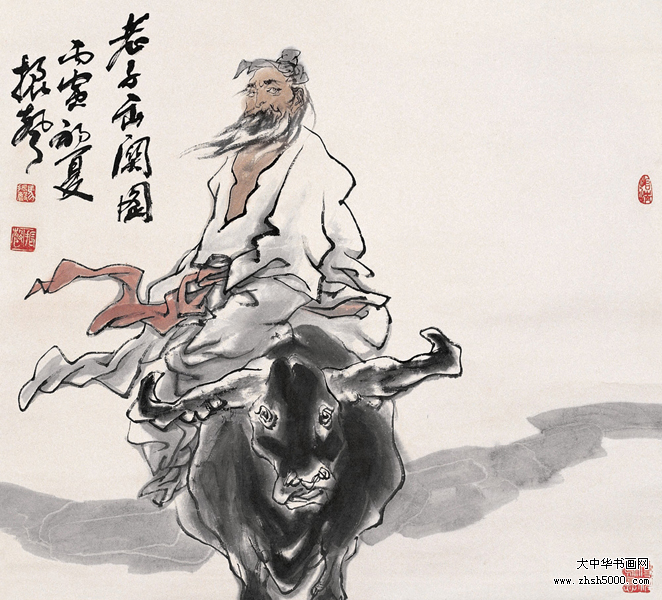 老子出関图
丙寅初夏
振声
大中华书画网
www.zhsh5000.com